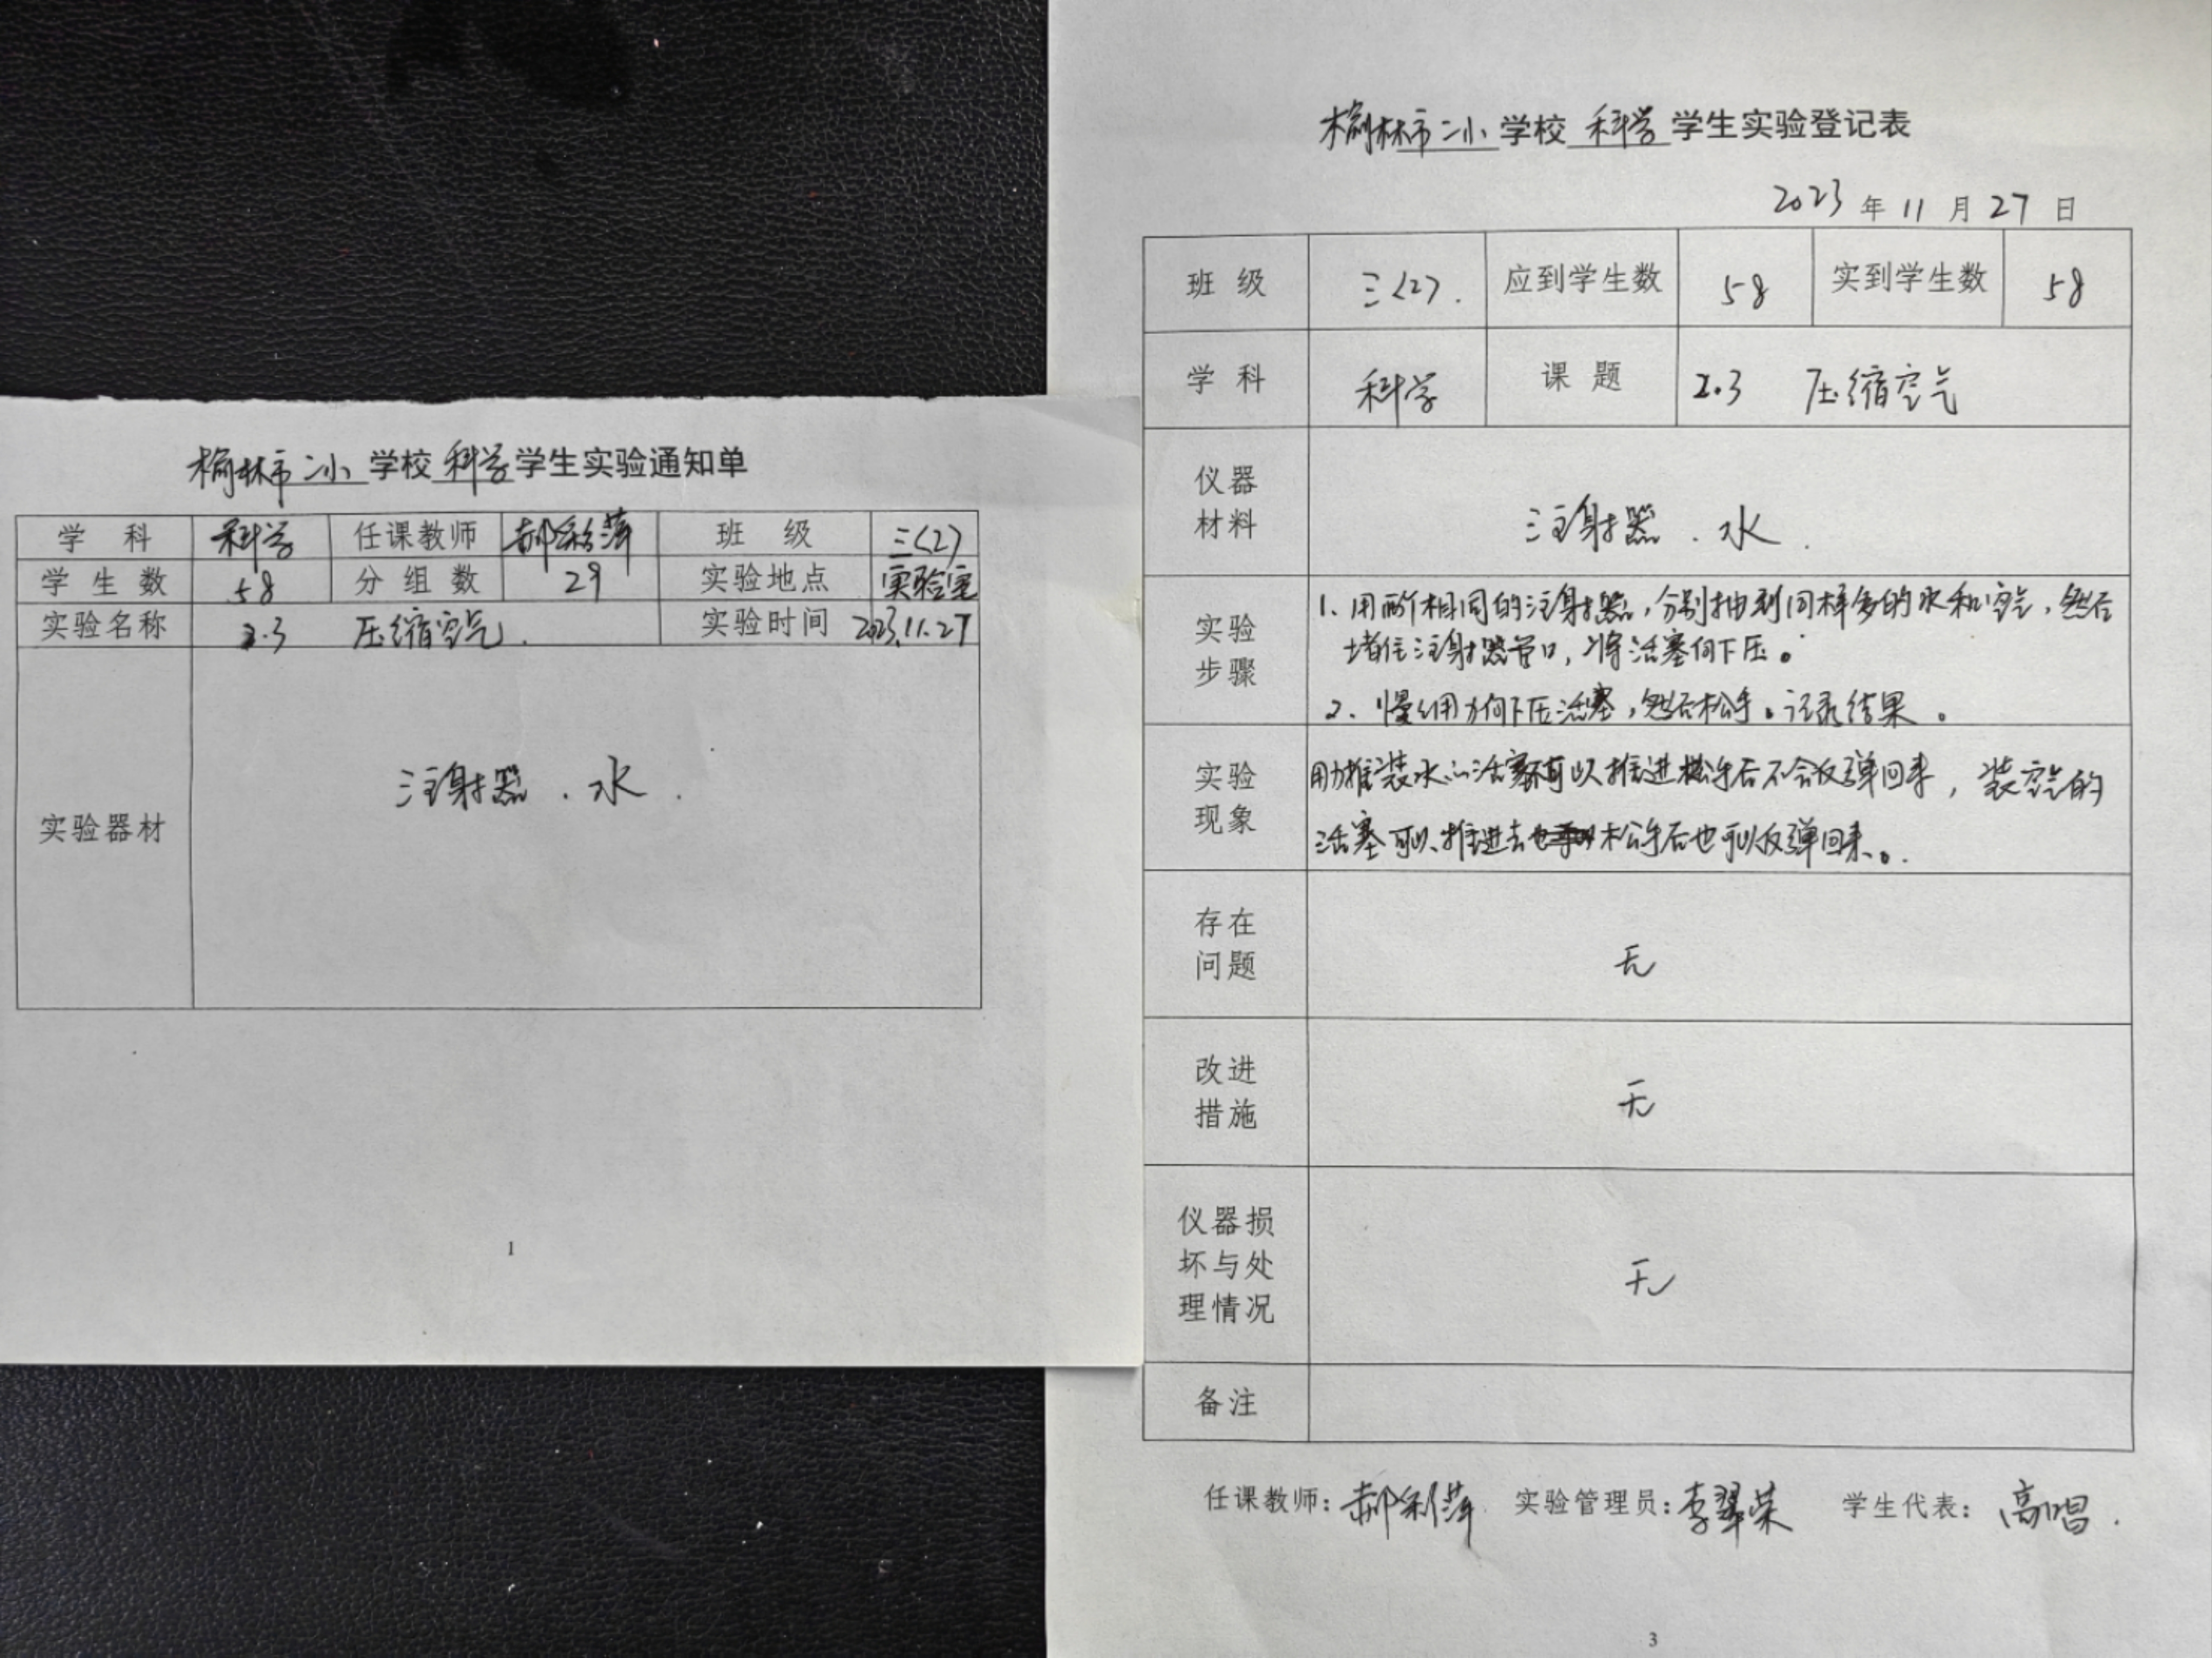 榆林市二小学校科学学生实验通知单
学 科 科学 任课教师 郝彩萍 班 级 三(2)
学 生 数 58 分 组 数 29 实验地点 实验室
实验名称 2.3 压缩空气. 实验时间 2023.11.27
实验器材 注射器.水.
1
榆林市二小学校科学学生实验登记表
2023年11月27日
班 级 三(2). 应到学生数 58 实到学生数 58
学 科 科学 课 题 2.3 压缩空气
仪器
材料
注射器.水.
实验
步骤
1.用两个相同的注射器,分别抽到同样多的水和空气,然后
堵住注射器管口,将活塞向下压。
2.慢慢用力向下压活塞,然后松手。记录结果。
实验
现象
用力推装水的活塞不可以推进松手后不会反弹回来,装空气的
活塞可以推进去松手后也可以反弹回来。.
存在
问题
无
改进
措施
无
仪器损
坏与处
理情况
无
备注
任课教师:郝彩萍 实验管理员:李翠荣 学生代表:高唱.
3